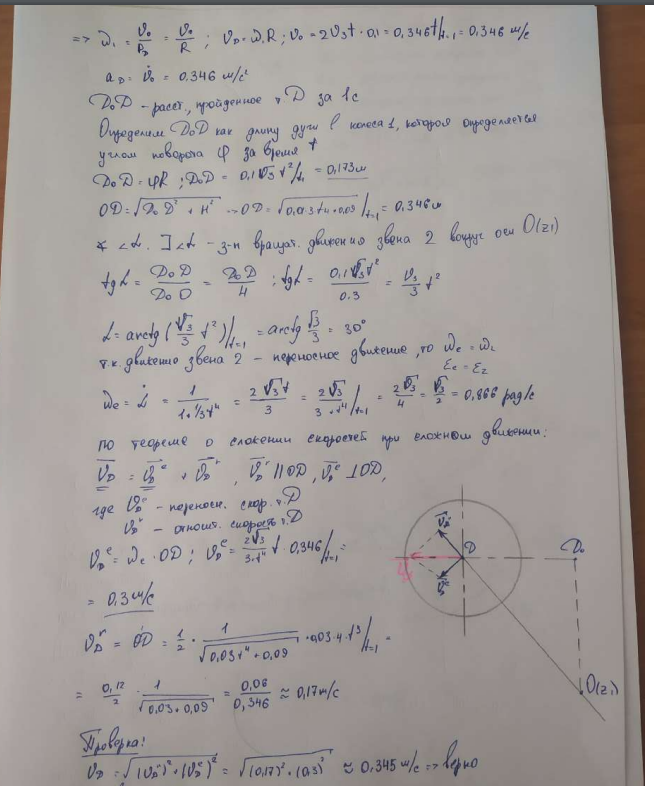 => ω₁ = υ₀/R_D = υ₀/R ; υ_D = ω₁R ; υ₀ = 2√3t · 0,1 = 0,346t/t=1 = 0,346 м/с
a_D = υ̇₀ = 0.346 м/с²
D₀D - расст., пройденное т. D за 1с
Определим D₀D как длину дуги l колеса 1, которая определяется
углом поворота φ за время t
D₀D = φR ; D₀D = 0,1√3 t²/t₁ = 0,173м
OD = √(D₀D² + H²) → OD = √(0,03t⁴+0.09) |t=1 = 0,346м
∡ <L. ] <L - з-н вращат. движения звена 2 вокруг оси O(z₁)
tgL = D₀D/D₀O = D₀D/H ; tgL = 0,1√3t²/0.3 = √3/3 t²
L = arctg(√3/3 t²)|t=1 = arctg √3/3 = 30°
т.к. движение звена 2 - переносное движение, то ωe = ω₂
εe = ε₂
ωe = L̇ = 1/1+⅓t⁴ = 2√3t/3 = 2√3/3+t⁴ |t=1 = 2√3/4 = √3/2 = 0,866 рад/с
По теореме о сложении скоростей при сложном движении:
υ̅_D = υ̅_Dᵉ + υ̅_Dʳ , υ̅_Dʳ || OD, υ̅_Dᵉ ⊥ OD,
где υ_Dᵉ - переносн. скор. т. D
υ_Dʳ - относит. скорость т. D
υ_Dᵉ = ωe · OD ; υ_Dᵉ = 2√3/3+t⁴ t · 0,346/t=1 =
= 0,3 м/с
υ_Dʳ = OḊ = 1/2 · 1/√(0,03t⁴+0,09) · 0,03·4·t³|t=1 =
= 0,12/2 · 1/√(0,03+0,09) = 0,06/0,346 ≈ 0,17м/с
Проверка:
υ_D = √((υ_Dʳ)²+(υ_Dᵉ)²) = √((0,17)²+(0,3)²) ≈ 0,345 м/с => верно
υ̅_Dʳ
D
D₀
υ̅_Dᵉ
O(z₁)